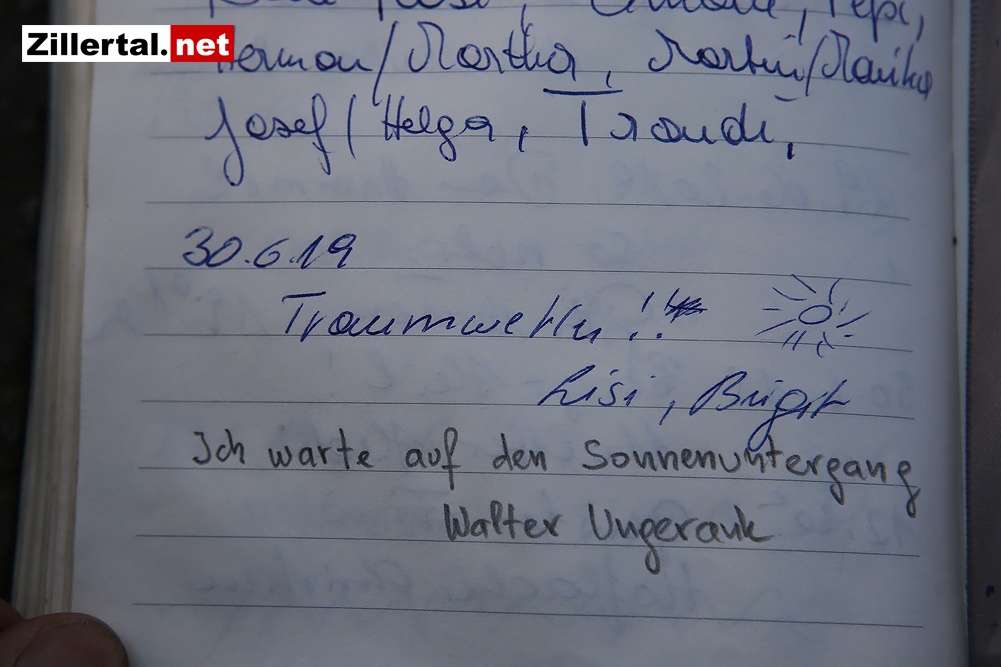 Zillertal.net
Pepi,
Herman/Martha, Martin/Marika
Josef/Helga, Traudi,
30.6.19
Traumwetter!!
Lisi, Brigit
Ich warte auf den Sonnenuntergang
Walter Ungerank